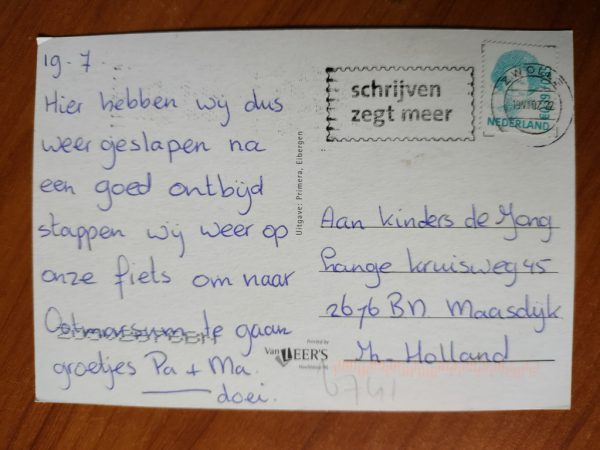 19-7
Hier hebben wij dus
weer geslapen na
een goed ontbijd
stappen wij weer op
onze fiets om naar
Ootmarsum te gaan
groetjes Pa + Ma.
doei.
Uitgave: Primera, Eibergen
Printed by
Van der MEER'S
schrijven
zegt meer
ZWOLLE
NEDERLAND
Aan kinders de Jong
Lange kruisweg 45
2676 BN Maasdijk
Zh-Holland